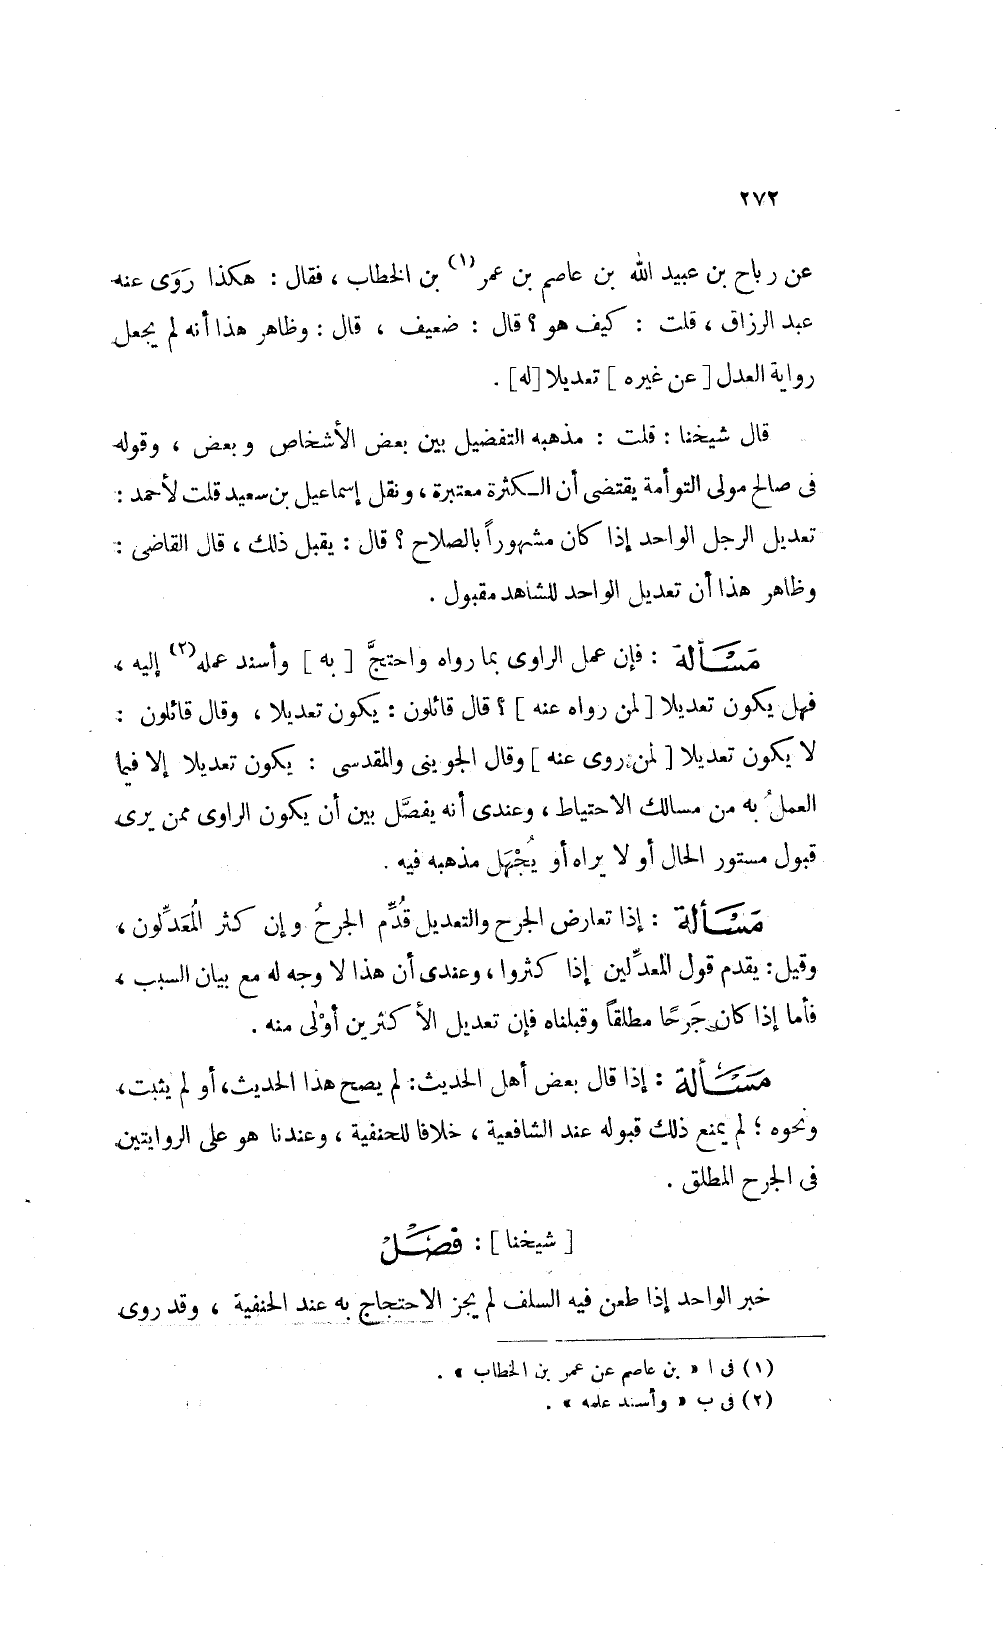 ٢٧٢
عن رباح بن عبيد الله بن عاصم بن عمر(١) بن الخطاب ، فقال : هكذا رَوَى عنه
عبد الرزاق ، قلت : كيف هو ؟ قال : ضعيف ، قال : وظاهر هذا أنه لم يجعل
رواية العدل [ عن غيره ] تعديلا [له] .
قال شيخنا : قلت : مذهبه التفضيل بين بعض الأشخاص وبعض ، وقوله
فى صالح مولى التوأمة يقتضى أن الكثرة معتبرة ، ونقل إسماعيل بن سعيد قلت لأحمد :
تعديل الرجل الواحد إذا كان مشهوراً بالصلاح ؟ قال : يقبل ذلك ، قال القاضى :
وظاهر هذا أن تعديل الواحد للشاهد مقبول .
مَسْأَلة : فإن عمل الراوى بما رواه واحتجَّ [ به ] وأسند عمله(٢) إليه ،
فهل يكون تعديلا [ لمن رواه عنه ] ؟ قال قائلون : يكون تعديلا ، وقال قائلون :
لا يكون تعديلا [ لمن روى عنه ] وقال الجوينى والمقدسى : يكون تعديلا إلا فيما
العملُ به من مسالك الاحتياط ، وعندى أنه يفصَّل بين أن يكون الراوى ممن يرى
قبول مستور الحال أو لا يراه أو يُجْهَل مذهبه فيه .
مَسْأَلة : إذا تعارض الجرح والتعديل قُدِّم الجرحُ وإن كثر المُعَدِّلون ،
وقيل : يقدم قول المعدِّلين إذا كثروا ، وعندى أن هذا لا وجه له مع بيان السبب ،
فأما إذا كان جَرحًا مطلقاً وقبلناه فإن تعديل الأكثرين أوْلى منه .
مَسْأَلة : إذا قال بعض أهل الحديث : لم يصح هذا الحديث ، أو لم يثبت ،
ونحوه ؛ لم يمنع ذلك قبوله عند الشافعية ، خلافا للحنفية ، وعندنا هو على الروايتين
فى الجرح المطلق .
[ شيخنا ] : فَصْلٌ
خبر الواحد إذا طعن فيه السلف لم يجز الاحتجاج به عند الحنفية ، وقد روى
(١) فى ا « بن عاصم عن عمر بن الخطاب » .
(٢) فى ب « وأسند علمه » .